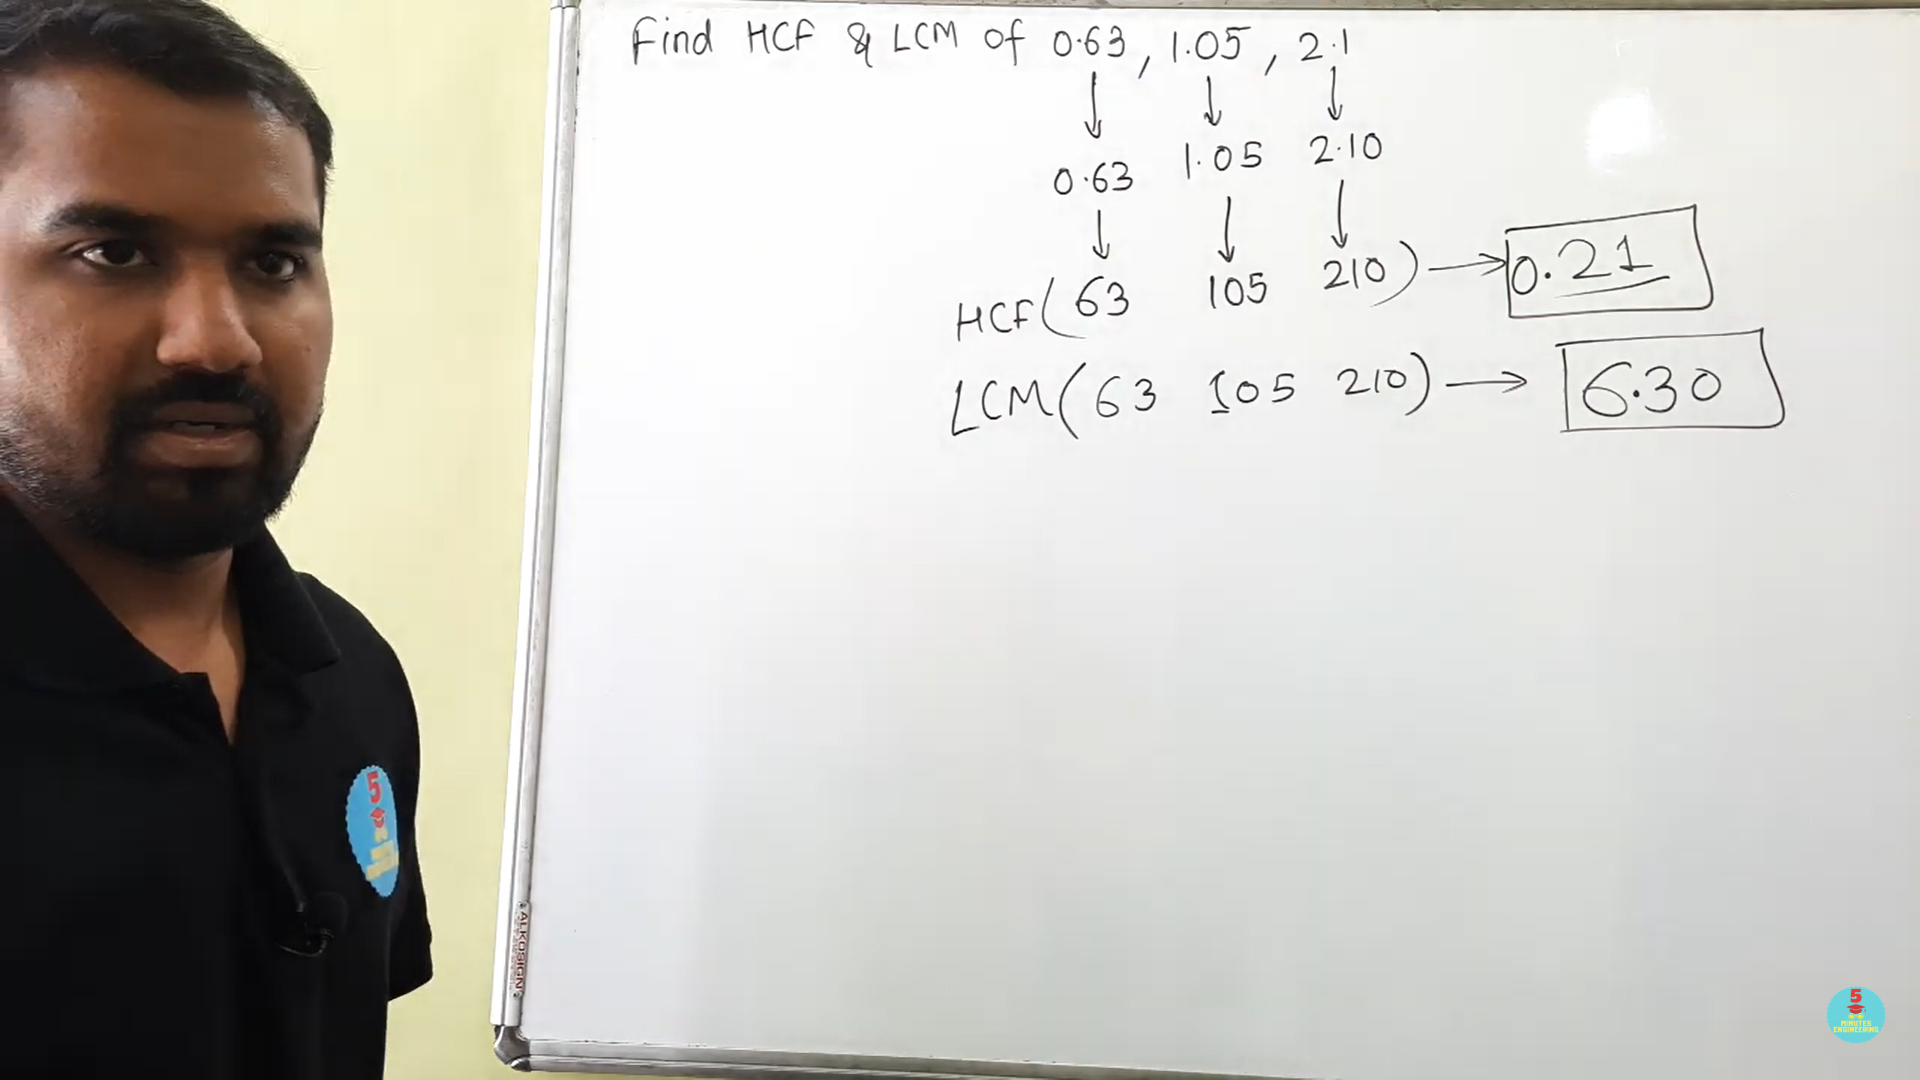 Find HCF & LCM of 0.63, 1.05, 2.1
0.63 1.05 2.10
HCF(63 105 210) → 0.21
LCM(63 105 210) → 6.30
5
ALKOSIGN
5
MINUTES
ENGINEERING